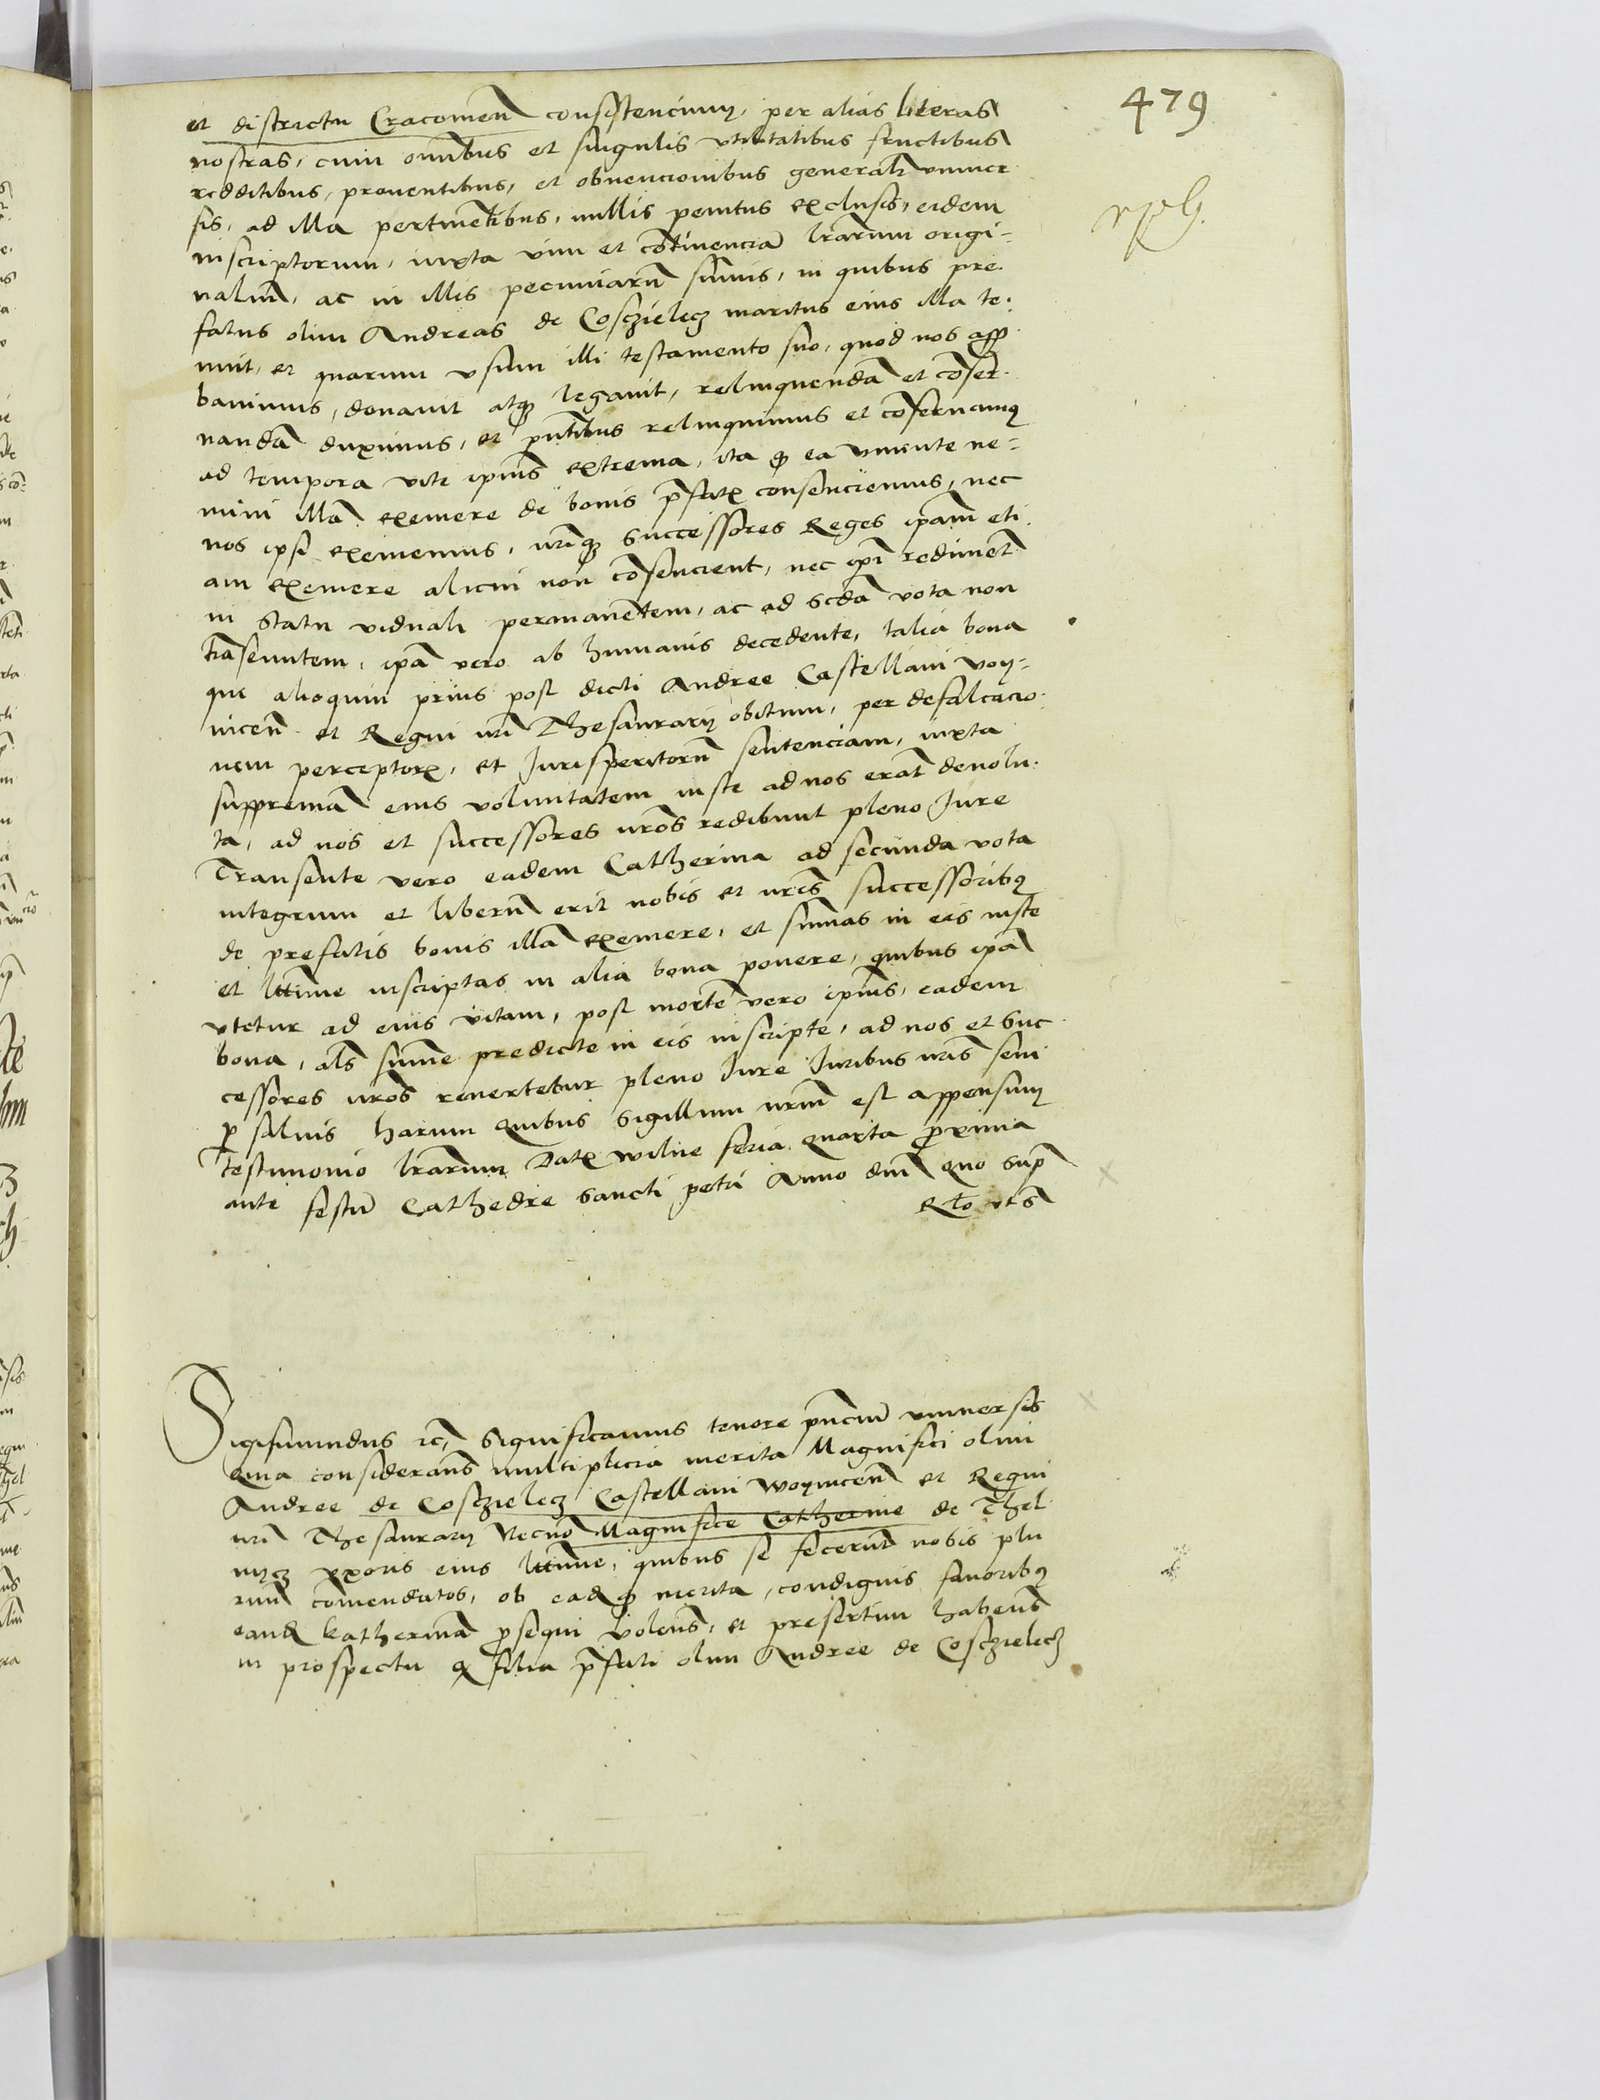 479
et districtu Cracovien̄ consistencium, per alias literas
nostras, cum om̄ibus et singulis vtilitatibus fructibus
redditibus, proventibus, et obvencionibus generalr̄ vniuer
sis, ad illa pertinen̄tibus, nullis penitus exclusis, eidem
inscriptorum, iuxta vim et cōtinenciā lrārum origi-
nalium̄, ac in illis pecuniarū sum̄is, in quibus pre
fatus olim Andreas de Coszielecz maritus eius illa te
nuit, et quarum vsum illi testamento suo, quod nos app̄
bauimus, donauit atqȝ legauit, relinquendā et cōser
uandā duximus, et pn̄tibus relinquimus et cōseruamus
ad tempora vite ipius̄ extrema, ita qȝ ea viuente ne-
mini illā exemere de bonis pr̄fatꝭ consenciemus, nec
nos ipsi eximemus, nr̄iqȝ successores Reges ipām eti
am exemere alicui non cōsencient, nec ipī rediment
in statu viduali permanen̄tem, ac ad scd̄a vota non
trāseuntem, ipā vero ab humanis decedente, talia bona
que alioquin prius post dicti Andree Castellani voy-
nicen̄ et Regni nr̄i Thesaurarij obitum, per defalcacio
nem perceptorꝭ, et Jurisperitorū sentenciam, iuxta
suppremā eius voluntatem iuste ad nos erān̄t deuolu
ta, ad nos et successores nr̄os redibunt pleno Jure
Transeunte vero eadem Catherina ad secunda vota
integrum et liberū erit nobis et nr̄is successoribꝯ
de prefatis bonis illā exemere, et sum̄as in eis iuste
et lttime inscriptas in alia bona ponere, quibus ipā
vtetur ad eius vitam, post mortē vero ipius̄, eadem
bona, als̄ sum̄e predicte in eis inscripte, ad nos et suc
cessores nr̄os reuertetur pleno Jure Juribus nr̄is sem
ꝑ saluis harum quibus Sigillum nr̄um est appensum
testimonio lrārum Datꝭ Wilne feria quarta ꝓxima
ante festū Cathedre Sancti petri Anno dn̄i quo sup̄
Rtō vts̄
Sigismundus ꝛc̄, Significamus tenore pn̄ciū vniuersis
Quia considerans̄ multiplicia merita Magnifici olim
Andree de Coszielecz Castellani Woynicen̄ et Regni
nr̄i Thesaurarij Necnō Magnifice Catherine de Thel
niczȝ vxoris eius lttime, quibus se fecerūt nobis plu
rimū cōmendatos, ob eaqȝ merita, condignis fauoribꝯ
eandē Katherinā ꝓsequi volens̄, et presertim habens̄
in prospectu qȝ filia pr̄fati olim Andree de Coszielecȝ